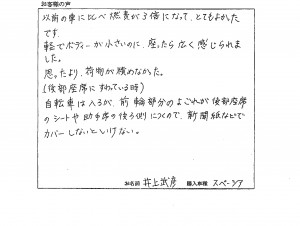 お客様の声
以前の車に比べ燃費が3倍になって、とてもよかった
です。
軽でボディーが小さいのに、座ったら広く感じられま
した。
思ったより、荷物が積めなかった。
(後部座席にすわっている時)
自転車は入るが、前輪部分のよごれが後部座席
のシートや助手席の後ろ側につくので、新聞紙などで
カバーしないといけない。
お名前 井上武彦 購入車種 スペーシア